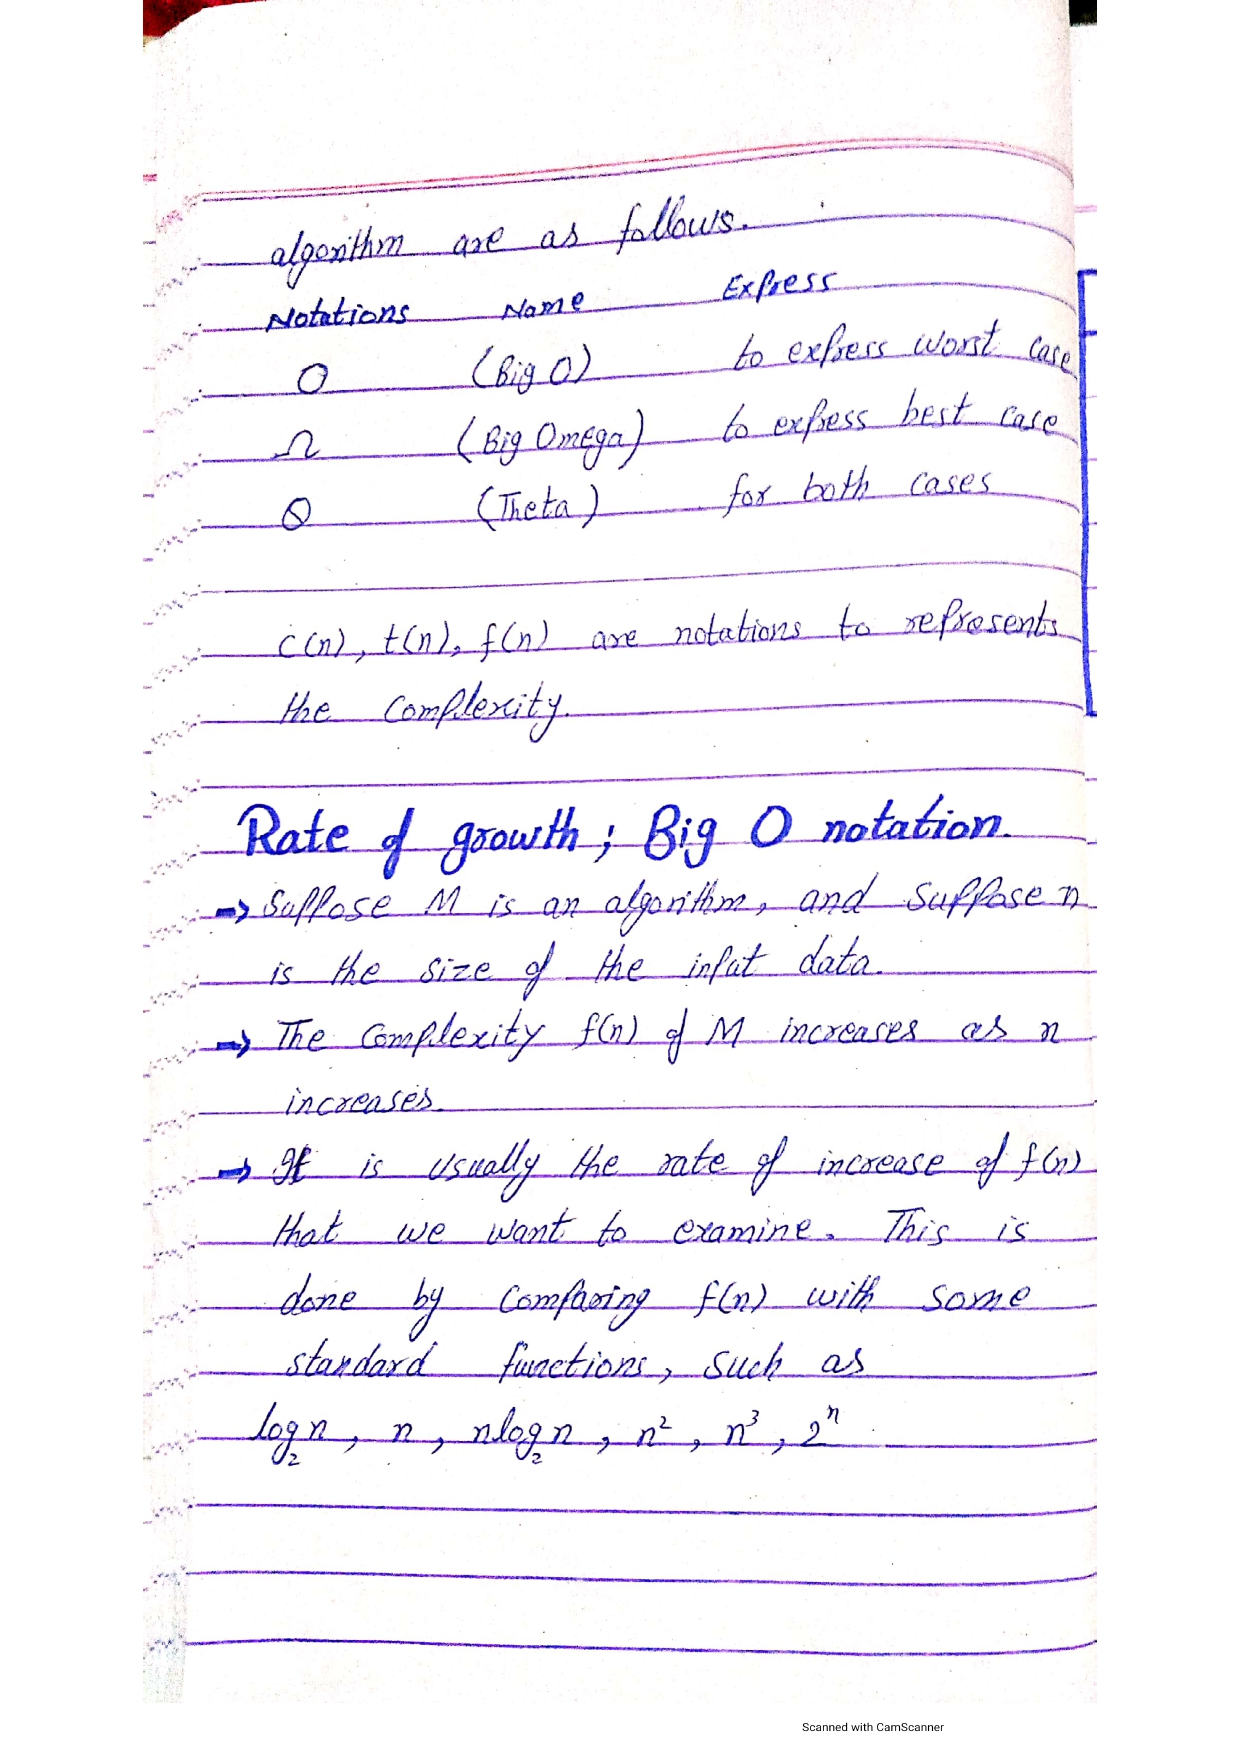 algorithm are as follows.
Notations Name Express
O (Big O) to express worst case
Ω (Big Omega) to express best case
Θ (Theta) for both cases
c(n), t(n), f(n) are notations to represents
the complexity.
Rate of growth ; Big O notation.
→ Suppose M is an algorithm, and suppose n
is the size of the input data.
→ The complexity f(n) of M increases as n
increases.
→ It is usually the rate of increase of f(n)
that we want to examine. This is
done by comparing f(n) with some
standard functions, such as
log₂n, n, nlog₂n, n², n³, 2ⁿ
Scanned with CamScanner